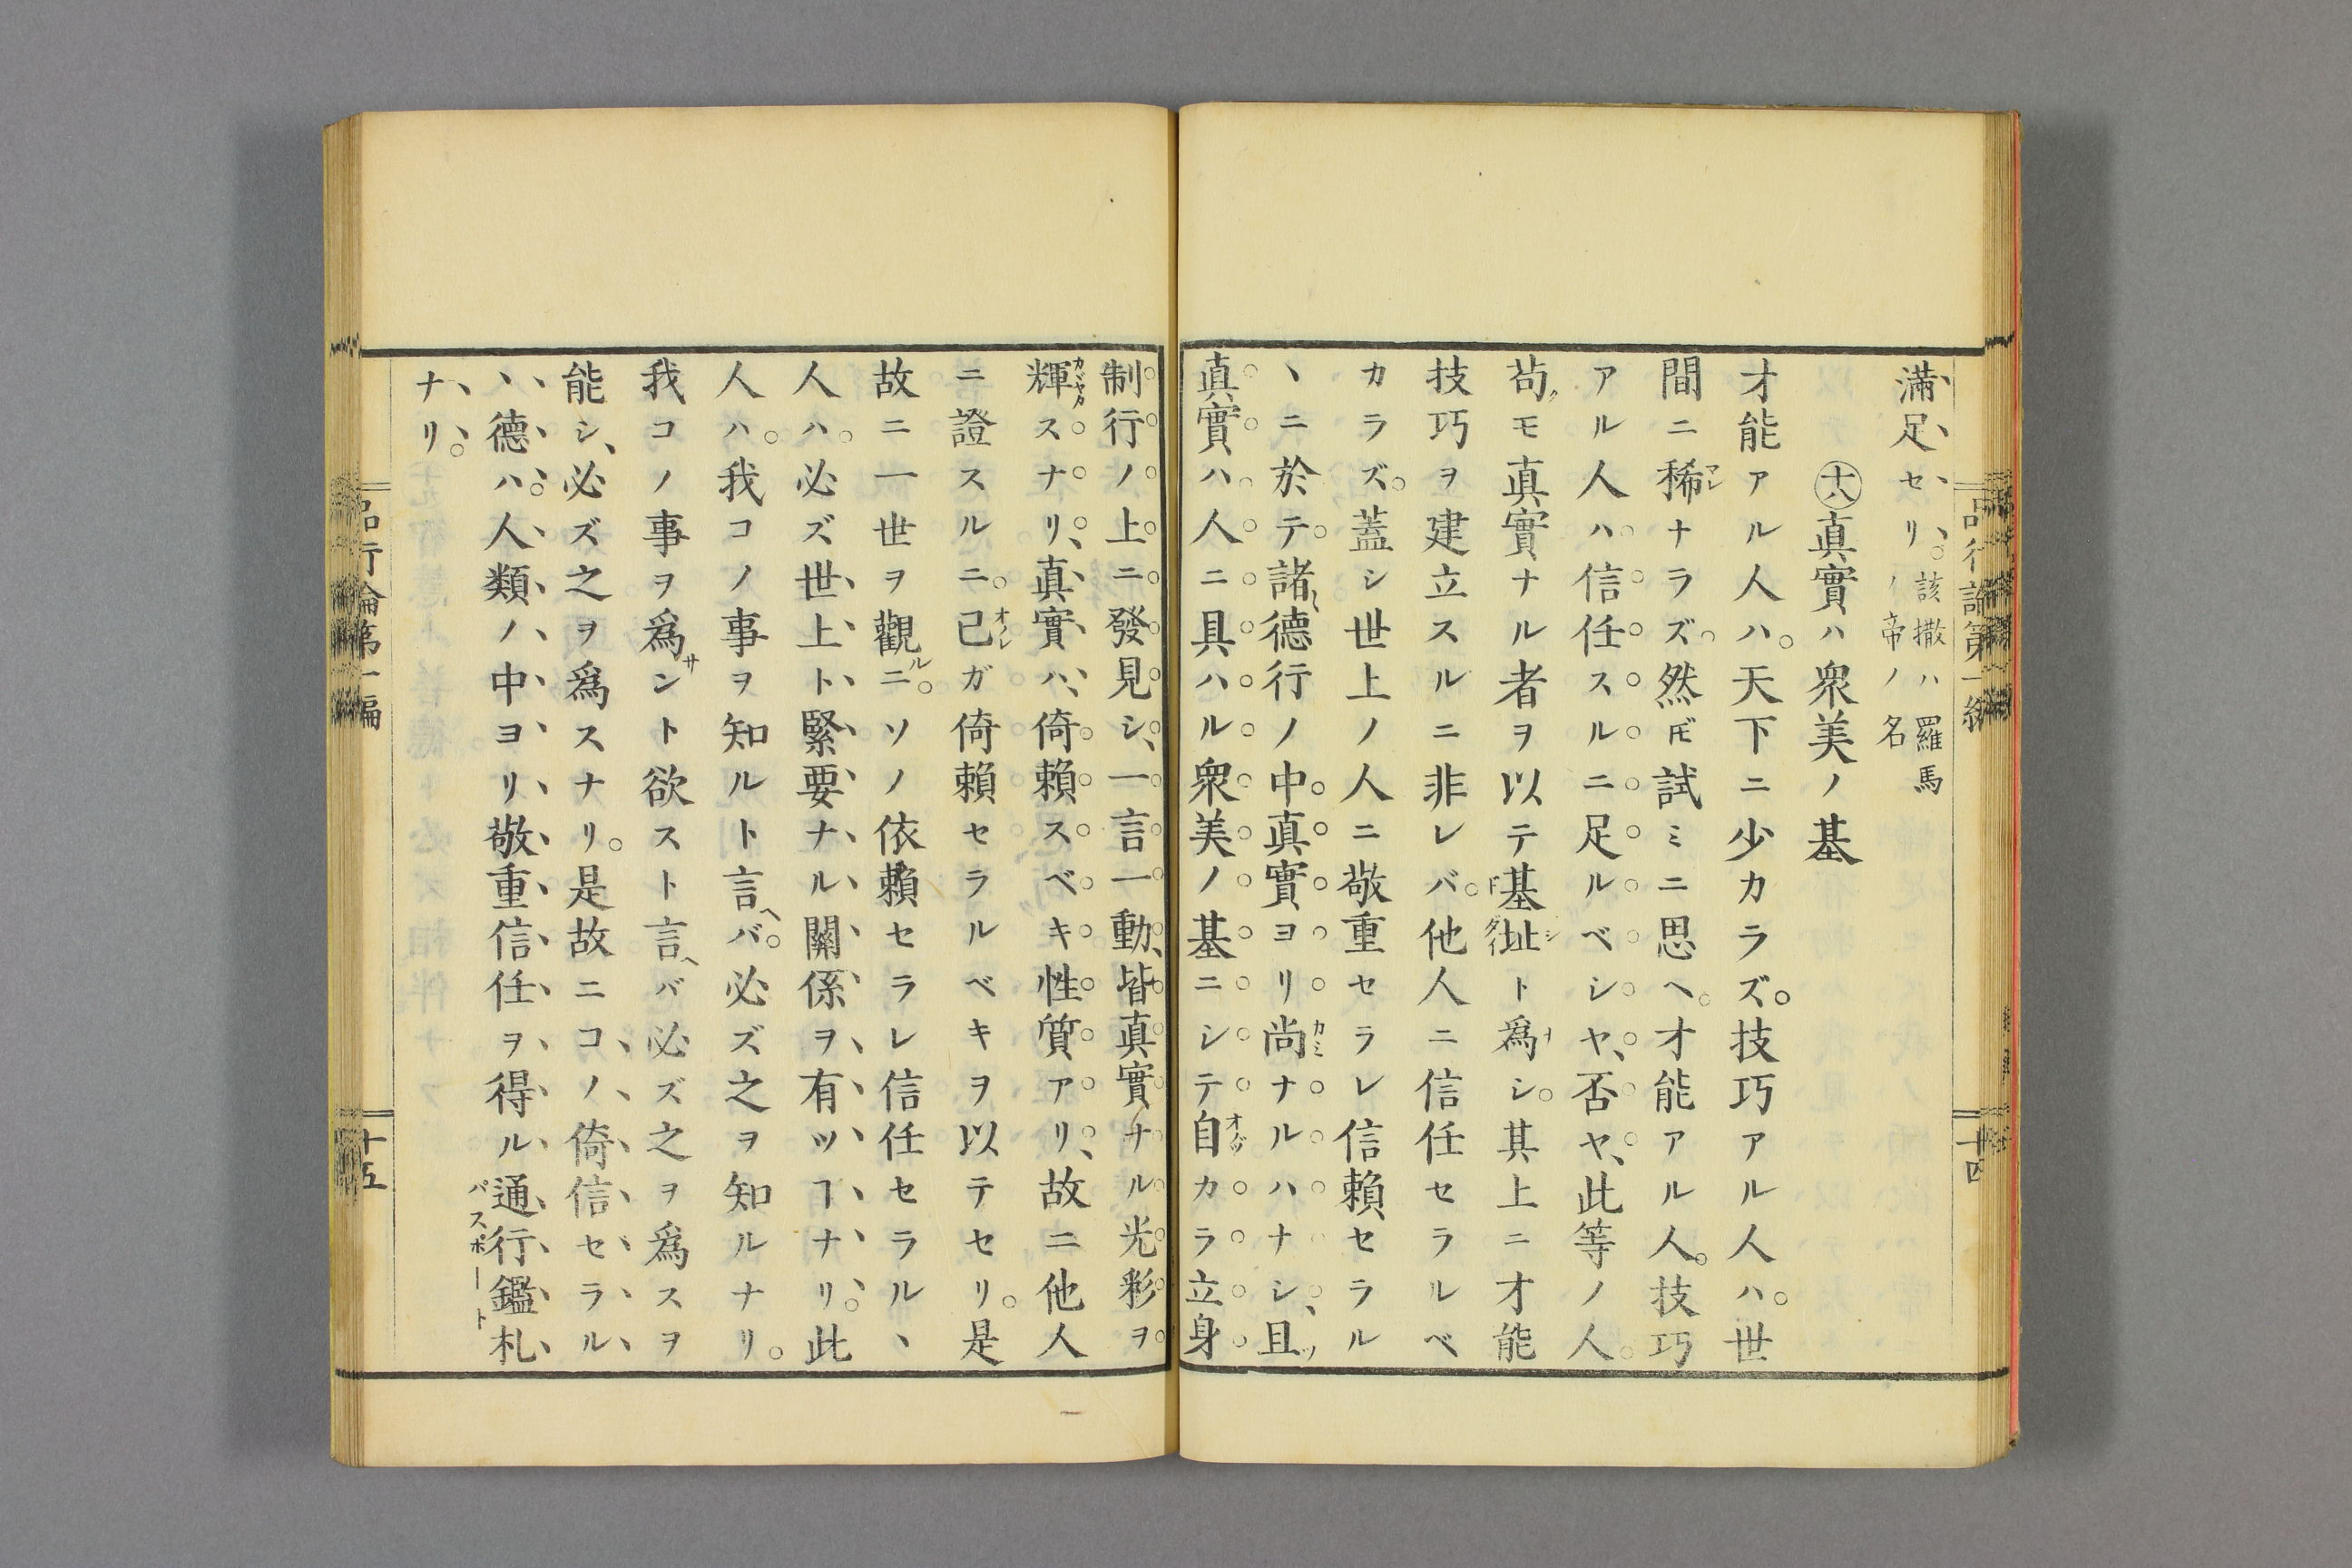 満足セリ。該撒ハ羅馬ノ帝ノ名
十八 真實ハ衆美ノ基
才能アル人ハ。天下ニ少カラズ。技巧アル人ハ。世
間ニ稀ナラズ。然𪜈試ミニ思ヘ。才能アル人。技巧
アル人ハ信任スルニ足ルベシヤ、否ヤ、此等ノ人
苟モ真實ナル者ヲ以テ基址ト爲シ。其上ニ才能
技巧ヲ建立スルニ非レバ。他人ニ信任セラルベ
カラズ。蓋シ世上ノ人ニ敬重セラレ信頼セラル
ヽニ於テ諸德行ノ中真實ヨリ尚ナルハナシ、且
真實ハ人ニ具ハル衆美ノ基ニシテ自カラ立身
品行論第一編
十四
制行ノ上ニ發見シ、一言一動、皆真實ナル光彩ヲ
輝スナリ、真實ハ、倚賴スベキ性質アリ、故ニ他人
ニ證スルニ。己ガ倚賴セラルベキヲ以テセリ。是
故ニ一世ヲ觀ルニ。ソノ依賴セラレ信任セラルヽ
人ハ。必ズ世上ト緊要ナル關係ヲ有ツヿナリ。此
人ハ。我コノ事ヲ知ルト言ヘバ。必ズ之ヲ知ルナリ。
我コノ事ヲ爲サント欲スト言ヘバ必ズ之ヲ爲スヲ
能シ、必ズ之ヲ爲スナリ。是故ニコノ倚信セラル
ヽ德ハ。人類ノ中ヨリ敬重信任ヲ得ル通行鑑札
ナリ。
品行論第一編
十五